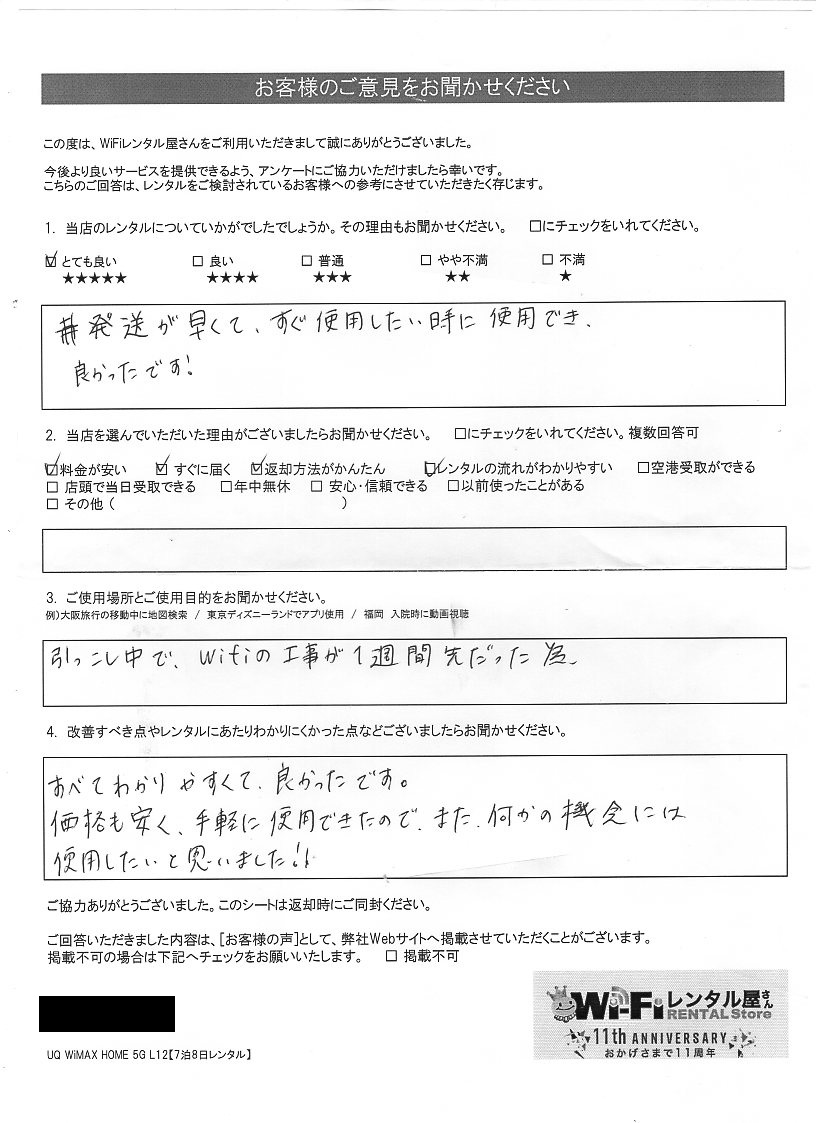 お客様のご意見をお聞かせください
この度は、WiFiレンタル屋さんをご利用いただきまして誠にありがとうございました。
今後より良いサービスを提供できるよう、アンケートにご協力いただけましたら幸いです。
こちらのご回答は、レンタルをご検討されているお客様への参考にさせていただきたく存じます。
1. 当店のレンタルについていかがでしたでしょうか。その理由もお聞かせください。 □にチェックをいれてください。
☑ とても良い □ 良い □ 普通 □ やや不満 □ 不満
★★★★★ ★★★★ ★★★ ★★ ★
発送が早くて、すぐ使用したい時に使用でき、
良かったです!
2. 当店を選んでいただいた理由がございましたらお聞かせください。 □にチェックをいれてください。複数回答可
☑料金が安い ☑ すぐに届く ☑返却方法がかんたん ☑レンタルの流れがわかりやすい □空港受取ができる
□ 店頭で当日受取できる □年中無休 □ 安心・信頼できる □以前使ったことがある
□ その他 ( )
3. ご使用場所とご使用目的をお聞かせください。
例)大阪旅行の移動中に地図検索 / 東京ディズニーランドでアプリ使用 / 福岡 入院時に動画視聴
引っこし中で、wifiの工事が1週間先だった為、
4. 改善すべき点やレンタルにあたりわかりにくかった点などございましたらお聞かせください。
すべてわかりやすくて、良かったです。
価格も安く、手軽に使用できたので、また、何かの機念には
使用したいと思いました!!
ご協力ありがとうございました。このシートは返却時にご同封ください。
ご回答いただきました内容は、[お客様の声]として、弊社Webサイトへ掲載させていただくことがございます。
掲載不可の場合は下記へチェックをお願いいたします。 □ 掲載不可
Wi-Fiレンタル屋さん
RENTAL Store
11th ANNIVERSARY
おかげさまで11周年
UQ WiMAX HOME 5G L12【7泊8日レンタル】